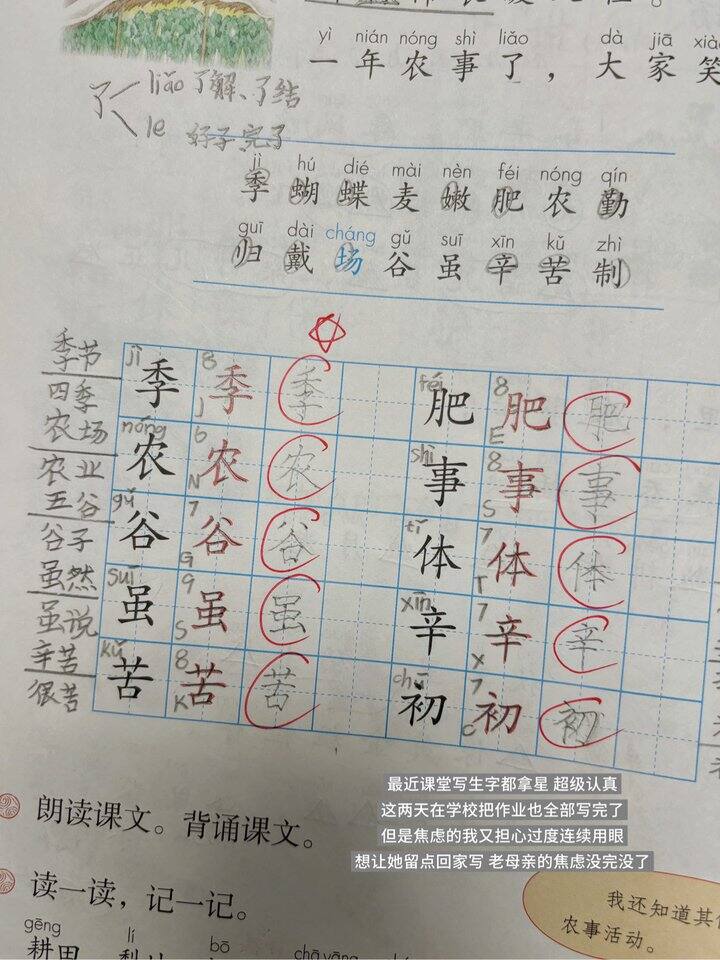 yì nián nóng shì liǎo, dà jiā
一年农事了，大家笑
了 liǎo 了解、了结
le 好了、完了
jì hú dié mài nèn féi nóng qín
季蝴蝶麦嫩肥农勤
guī dài cháng gǔ suī xīn kǔ zhì
归戴场谷虽辛苦制
季节
四季
农场
农业
五谷
谷子
虽然
虽说
辛苦
很苦
jì 季 8 季 J 季 féi 肥 8 肥 E 肥
nóng 农 6 农 N 农 shì 事 8 事 S 事
gǔ 谷 7 谷 G 谷 tǐ 体 7 体 T 体
suī 虽 9 虽 S 虽 xīn 辛 7 辛 X 辛
kǔ 苦 8 苦 K 苦 chū 初 7 初 C 初
最近课堂写生字都拿星 超级认真
这两天在学校把作业也全部写完了
但是焦虑的我又担心过度连续用眼
想让她留点回家写 老母亲的焦虑没完没了
朗读课文。背诵课文。
读一读，记一记。
我还知道其
农事活动。
gēng lí bō
耕田